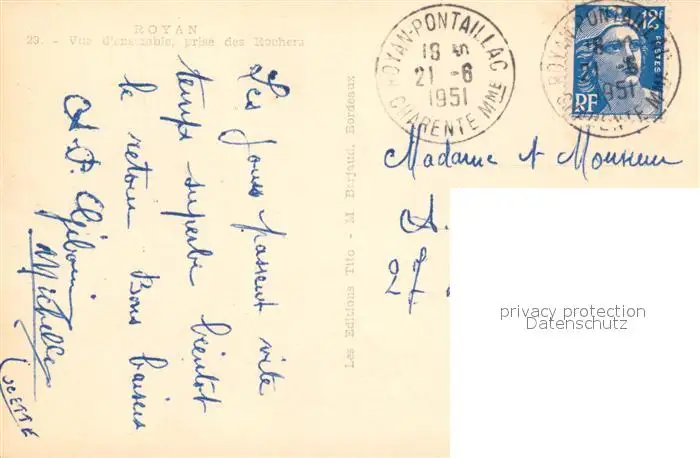 ROYAN
29. - Vue d'ensemble, prise des Rochers
Les jours passent vite
temps superbe bientôt
le retour Bons baisers
Michelle
Les Editions Tito - M Berjaud, Bordeaux
ROYAN-PONTAILLAC
18 5
21 -6
1951
CHARENTE Mme
12F
POSTES
RF
ROYAN-PONTAILLAC
18
21 -6
1951
CHARENTE Mme
Madame et Monsieur
A.
27
privacy protection
Datenschutz